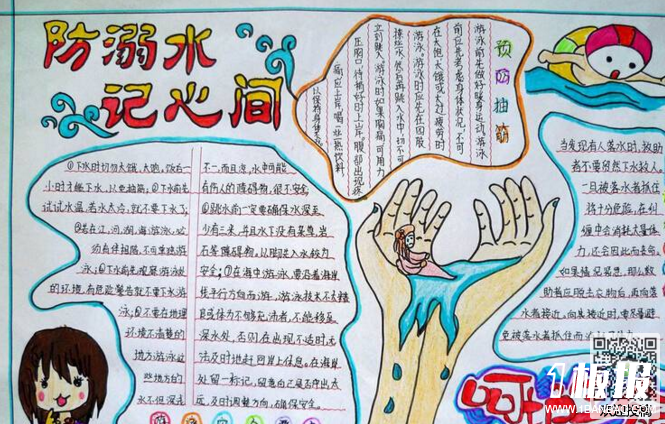 防溺水
记心间
预防抽筋
游泳前先做好暖身运动,游泳
前应先考虑身体状况,不可
在太饱、太饿或太过疲劳时
游泳。游泳时应先在四肢
擦些水,然后再跳入水中,切不可
立刻跳入,游泳时如果胸痛,可用力
压胸口,待稍好时上岸,腹部出现疼
痛应上岸,喝一些热饮料
以保持身体
①下水时切勿太饿、太饱,饭后一
小时才能下水,以免抽筋;②下水前先
试试水温,若水太冷,就不要下水了;
③若在江、河、湖、海游泳,必
须有伴相陪,不可单独游
泳;④下水前先观察游泳处
的环境,有危险警告就不要下水游
泳;⑤不要在地理
环境不清楚的
地方游泳,这
些地方的
水不但深浅
不一,而且凉,水中可能
有伤人的障碍物,很不安全;
⑥跳水前一定要确保水深至
少有三米,并且水下没有杂草岩
石等障碍物,以脚先入水较为
安全;⑦在海中游泳,要沿着海岸
线平行方向而游,游泳技术不太精
良或体力不够充沛者,不能移至
深水处,否则在出现不适时,无
法及时地赶回岸上休息。在海岸
处留一标记,留意自己是否冲出太
远,及时调整方向,确保安全。
当发现有人落水时,救助
者不要贸然下水救人,
一旦被落水者抓住
将十分危险,在纠
缠中会消耗大量体
力,还会因此丧命。
如果情况紧急,那么救
助者应脱去衣物后,再向落
水者接近,向其接近时,要尽量避
免被落水者抓住
板报